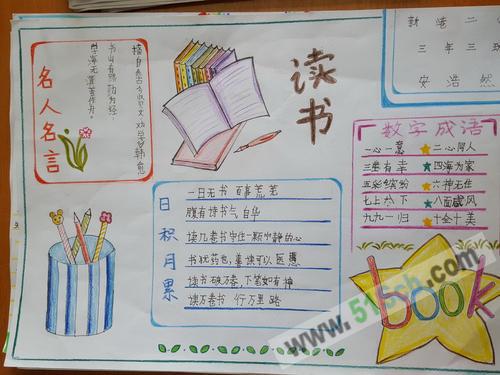 名人名言
书山有路勤为径
学海无涯苦作舟。
读书
勤港二
三年三班
安浩然
数字成语
一心一意★二心同人
三生有幸★四海为家
五彩缤纷★六神无住
七上八下★八面威风
九九一归★十全十美
日积月累
一日无书 百事荒芜
腹有诗书气自华
读几卷书守住一颗宁静的心
书犹药也,善读可以医愚
读书破万卷,下笔如有神
读万卷书 行万里路
book